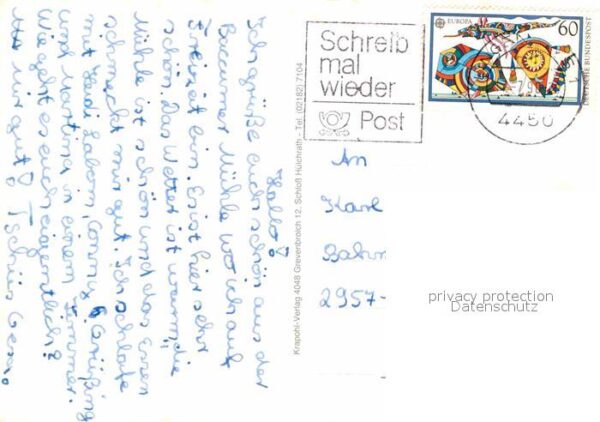 Hallo!
Ich grüße euch schön aus der
Bever Mühle wo ich auf
Freizeit bin. Es ist hier sehr
schön. Das Wetter ist warm, die
Mühle ist schön und das Essen
schmeckt mir gut. Ich schlafe
mit Heidi Conny
und Martina in einem Zimmer.
Wie geht es euch eigentlich?
Mir gut! Tschüs
Krapohl-Verlag 4048 Grevenbroich 12, Schloß Hülchrath - Tel. (02182) 7104
Schreib
mal
wieder
Post
EUROPA
60
DEUTSCHE BUNDESPOST
4450
An
Karl
Bahn
2957-
privacy protection
Datenschutz